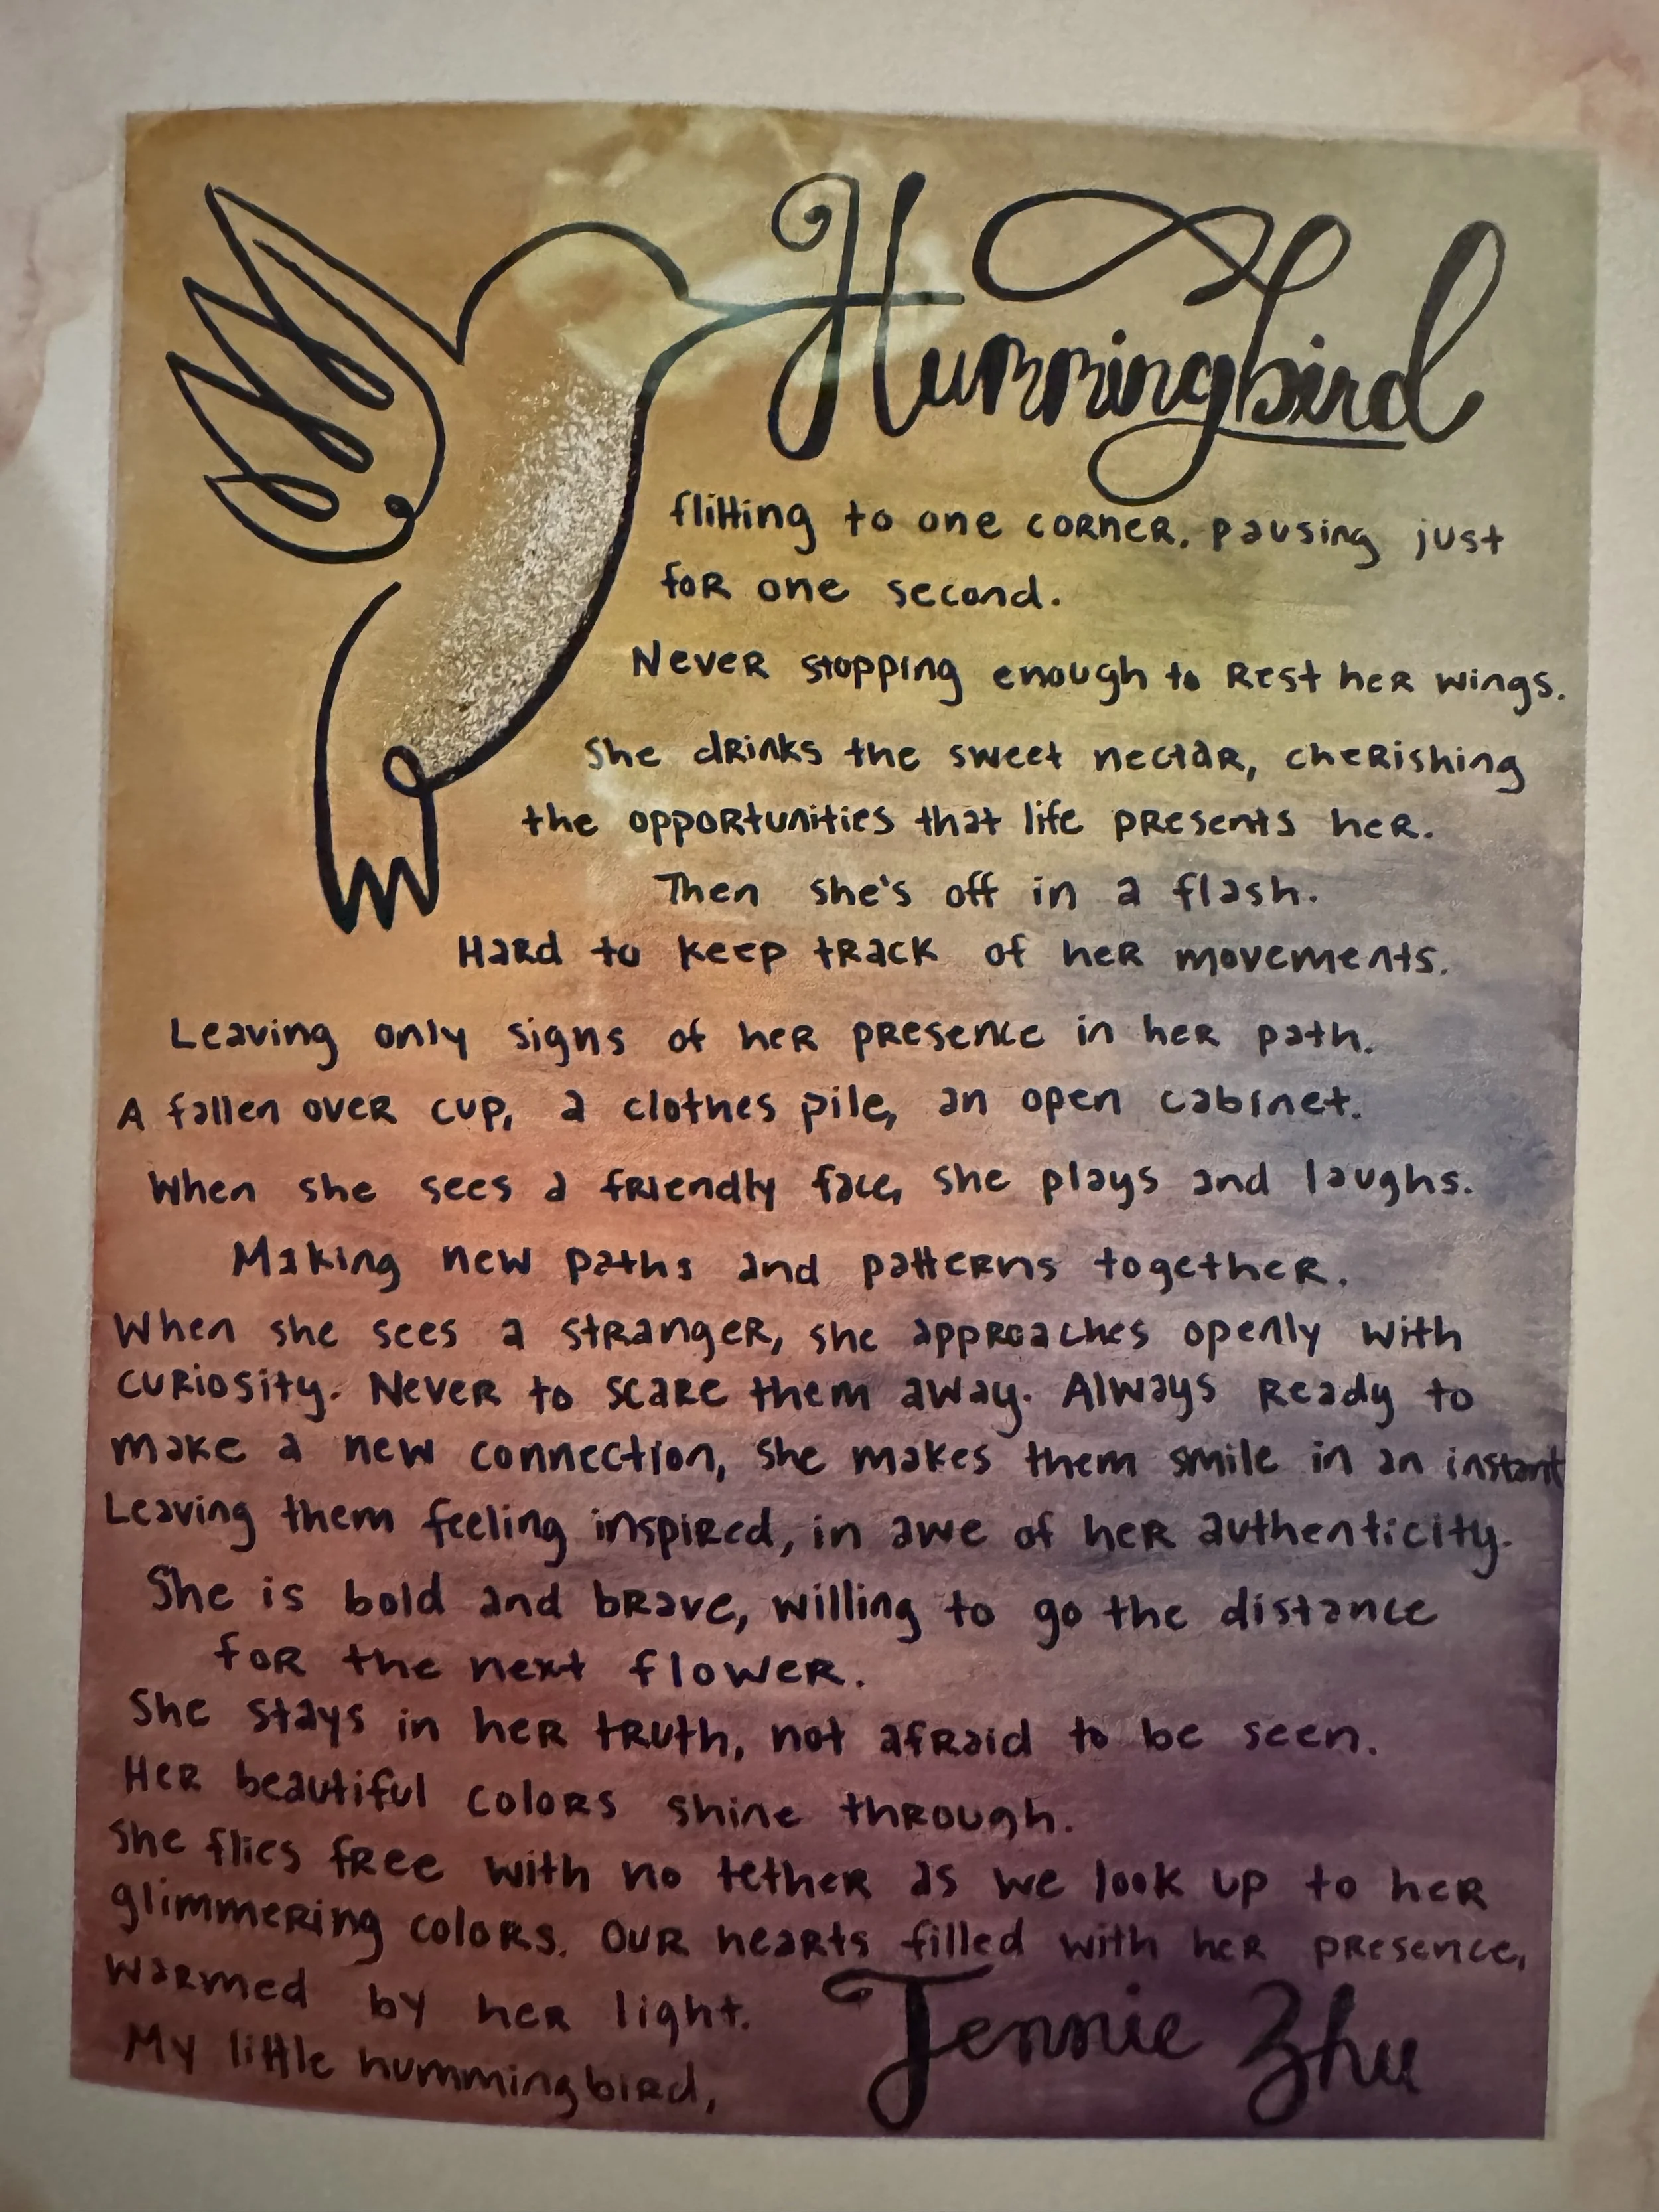 Hummingbird
flitting to one corner, pausing just
for one second.
Never stopping enough to Rest her wings.
She drinks the sweet nectar, cherishing
the opportunities that life presents her.
Then she's off in a flash.
Hard to keep track of her movements.
Leaving only signs of her presence in her path.
A fallen over cup, a clothes pile, an open cabinet.
When she sees a friendly face, she plays and laughs.
Making new paths and patterns together.
When she sees a stranger, she approaches openly with
curiosity. Never to scare them away. Always Ready to
make a new connection, she makes them smile in an instant
Leaving them feeling inspired, in awe of her authenticity.
She is bold and brave, willing to go the distance
for the next flower.
She stays in her truth, not afraid to be seen.
Her beautiful colors shine through.
She flies free with no tether as we look up to her
glimmering colors. Our hearts filled with her presence,
warmed by her light.
My little hummingbird,
Jennie Zhu